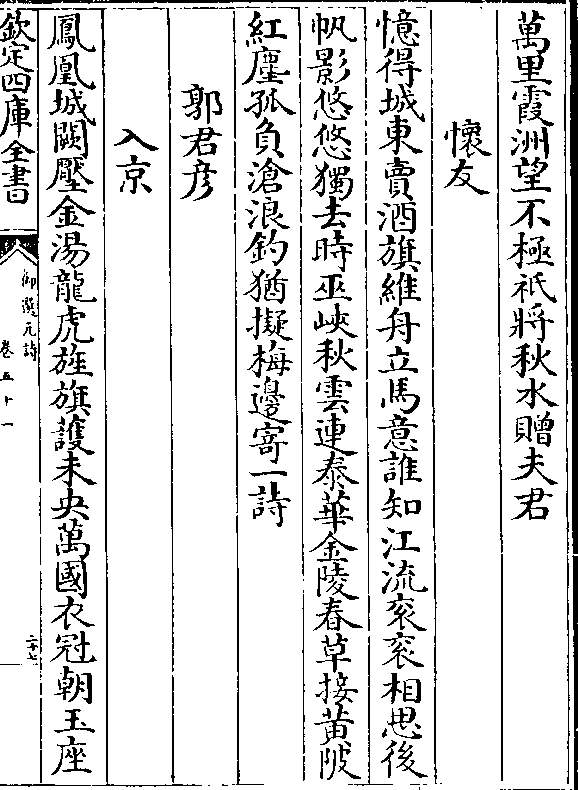 萬里霞洲望不極祇將秋水贈夫君
懷友
憶得城東賣酒旗維舟立馬意誰知江流衮衮相思後
帆影悠悠獨去時巫峽秋雲連泰華金陵春草接黃陂
紅塵孤負滄浪釣猶擬梅邊寄一詩
郭君彦
入京
鳳凰城闕壓金湯龍虎旌旗護未央萬國衣冠朝玉座
欽定四庫全書
御選元詩
卷五十一
二十七